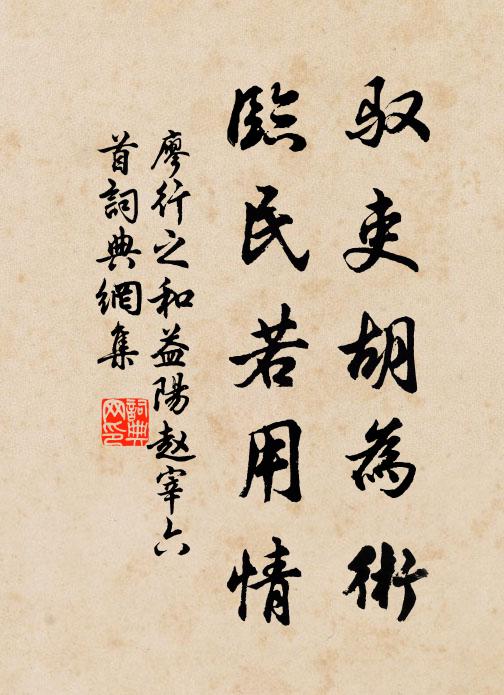 驭吏胡為術
臨民若用情
廖行之和益陽赵宰六
首詞典網集
詞典网印